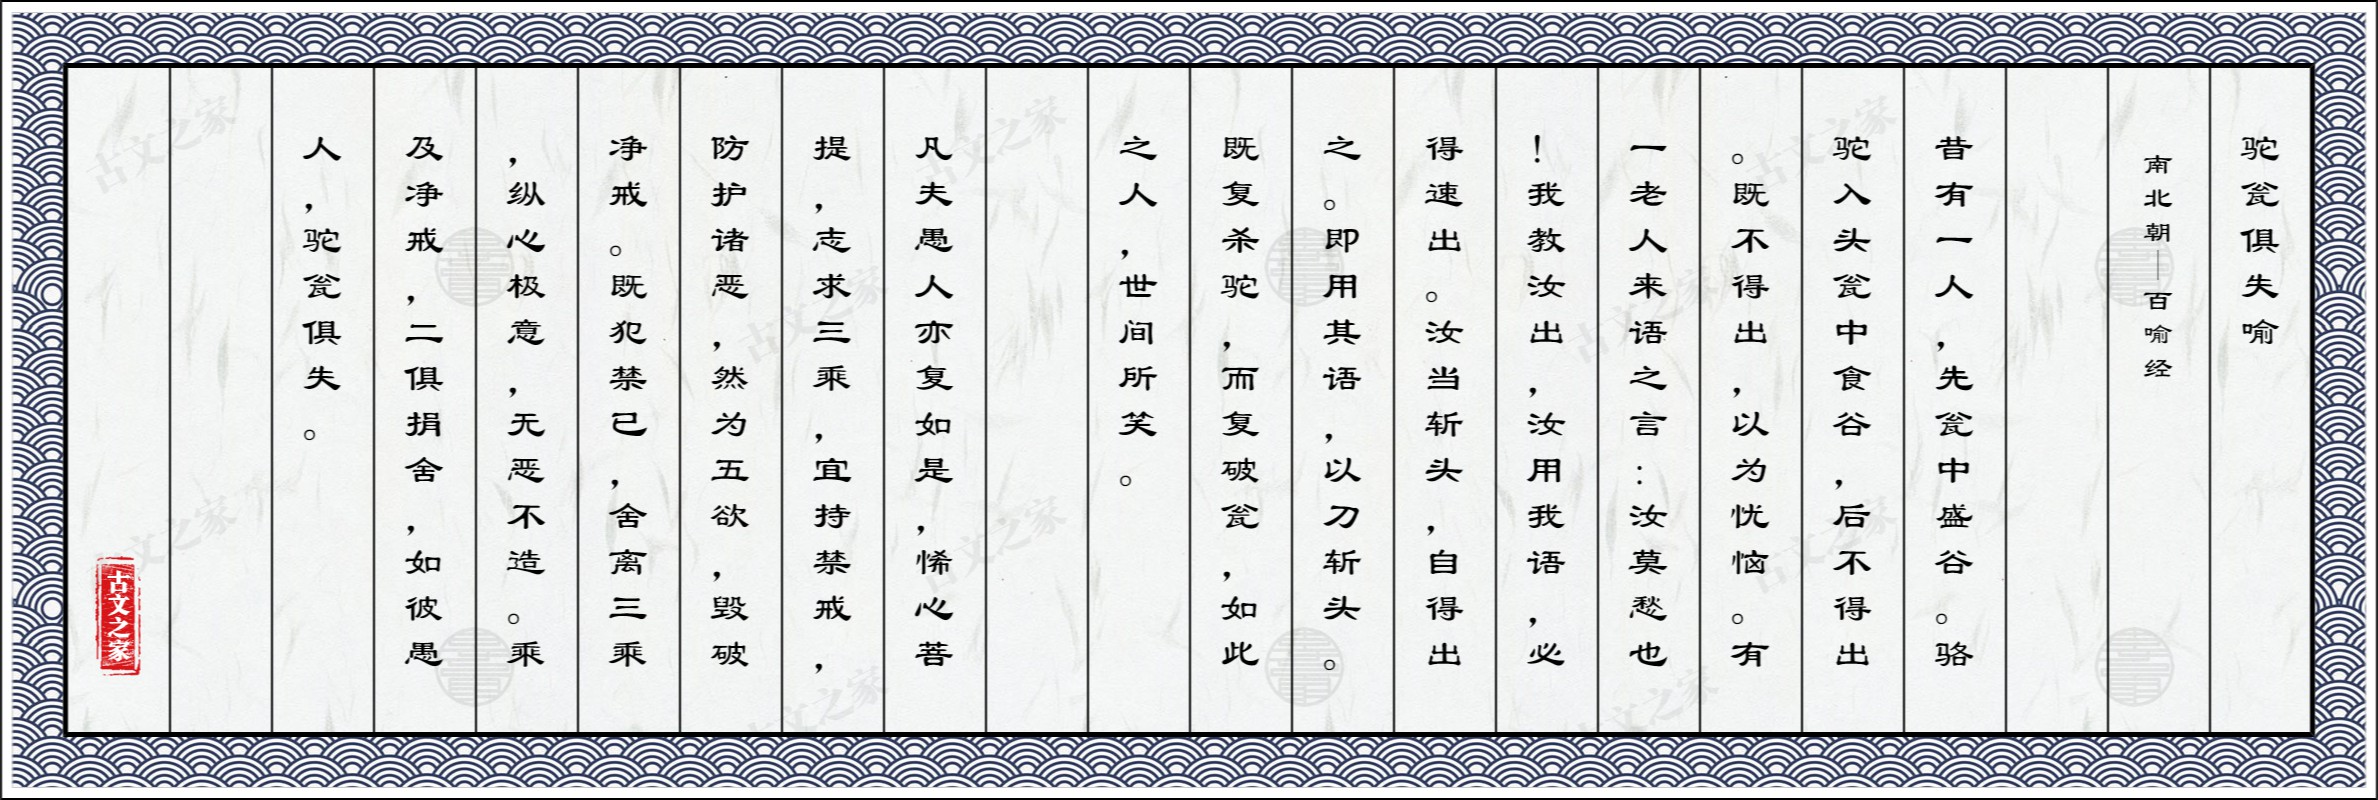 驼瓮俱失喻
南北朝—百喻经
昔有一人，先瓮中盛谷。骆
驼入头瓮中食谷，后不得出
。既不得出，以为忧恼。有
一老人来语之言：汝莫愁也
！我教汝出，汝用我语，必
得速出。汝当斩头，自得出
之。即用其语，以刀斩头。
既复杀驼，而复破瓮，如此
之人，世间所笑。
凡夫愚人亦复如是，悕心菩
提，志求三乘，宜持禁戒，
防护诸恶，然为五欲，毁破
净戒。既犯禁已，舍离三乘
，纵心极意，无恶不造。乘
及净戒，二俱捐舍，如彼愚
人，驼瓮俱失。
古文之家